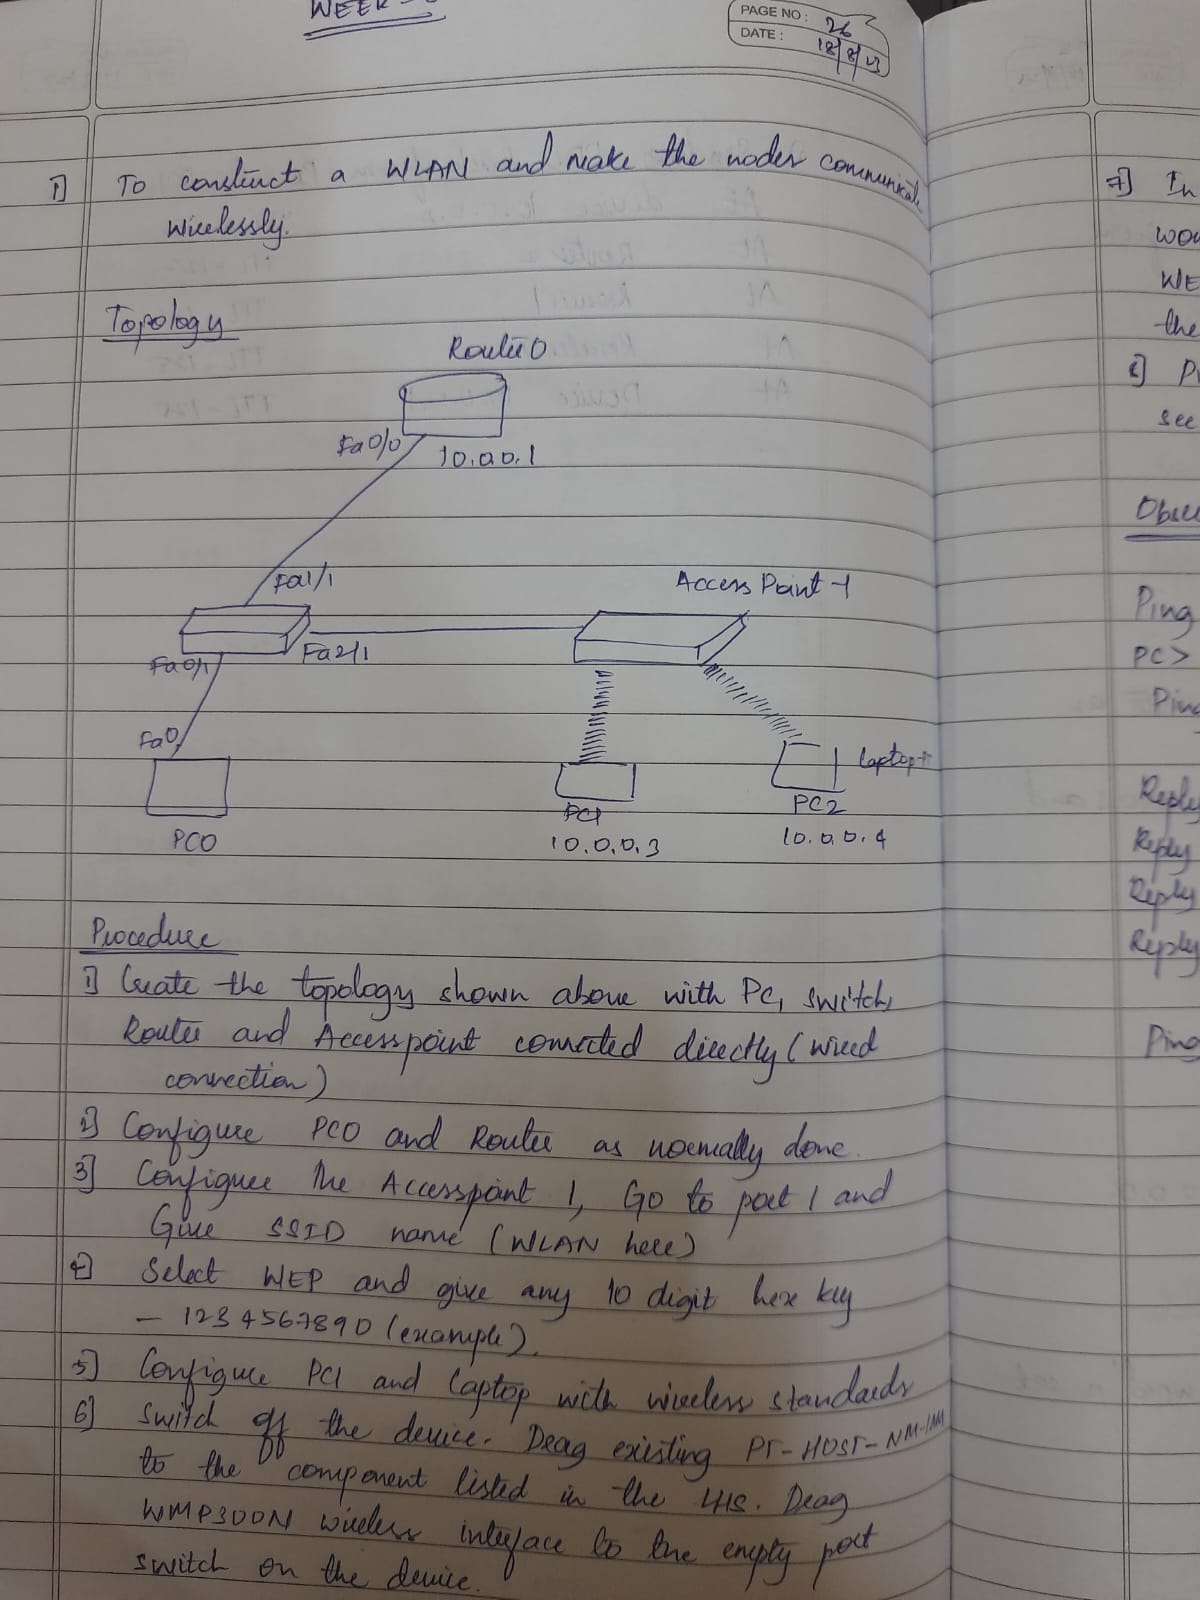 WEEK-
PAGE NO: 26
DATE: 18/8/23
1] To construct a WLAN and make the nodes communicate
wirelessly.
Topology
Router0
Fa0/0
10.0.0.1
Fa1/1
Access Point-1
Fa0/1
Fa2/1
Fa0
Laptop
PC0
PC1
PC2
10.0.0.3
10.0.0.4
Procedure
1] Create the topology shown above with PC, switch,
Router and Accesspoint connected directly (wired
connection)
2] Configure PC0 and Router as normally done.
3] Configure the Accesspoint 1, Go to port 1 and
Give SSID name (WLAN here)
4] Select WEP and give any 10 digit hex key
- 1234567890 (example).
5] Configure PC1 and laptop with wireless standards
6] Switch off the device. Drag existing PT-HOST-NM-1AM
to the component listed in the LHS. Drag
WMP300N wireless interface to the empty port
switch on the device.
7] In
WE
the
8]
see
Ping
PC>
Ping
Reply
Reply
Reply
Reply
Ping